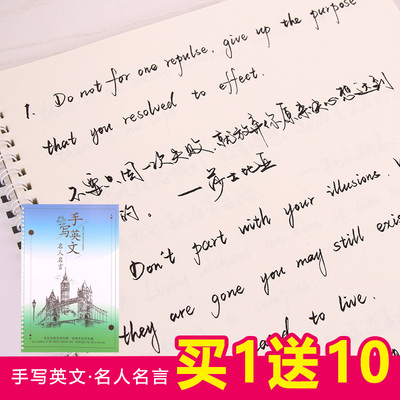 1. Do not for one repulse, give up the purpose
that you resolved to effect.
不要只因一次失败，就放弃你原来决心想达到
的。——莎士比亚
Don't part with your illusions. W
they are gone you may still exis
ad to live.
手写英文
名人名言
手写英文·名人名言
买1送10